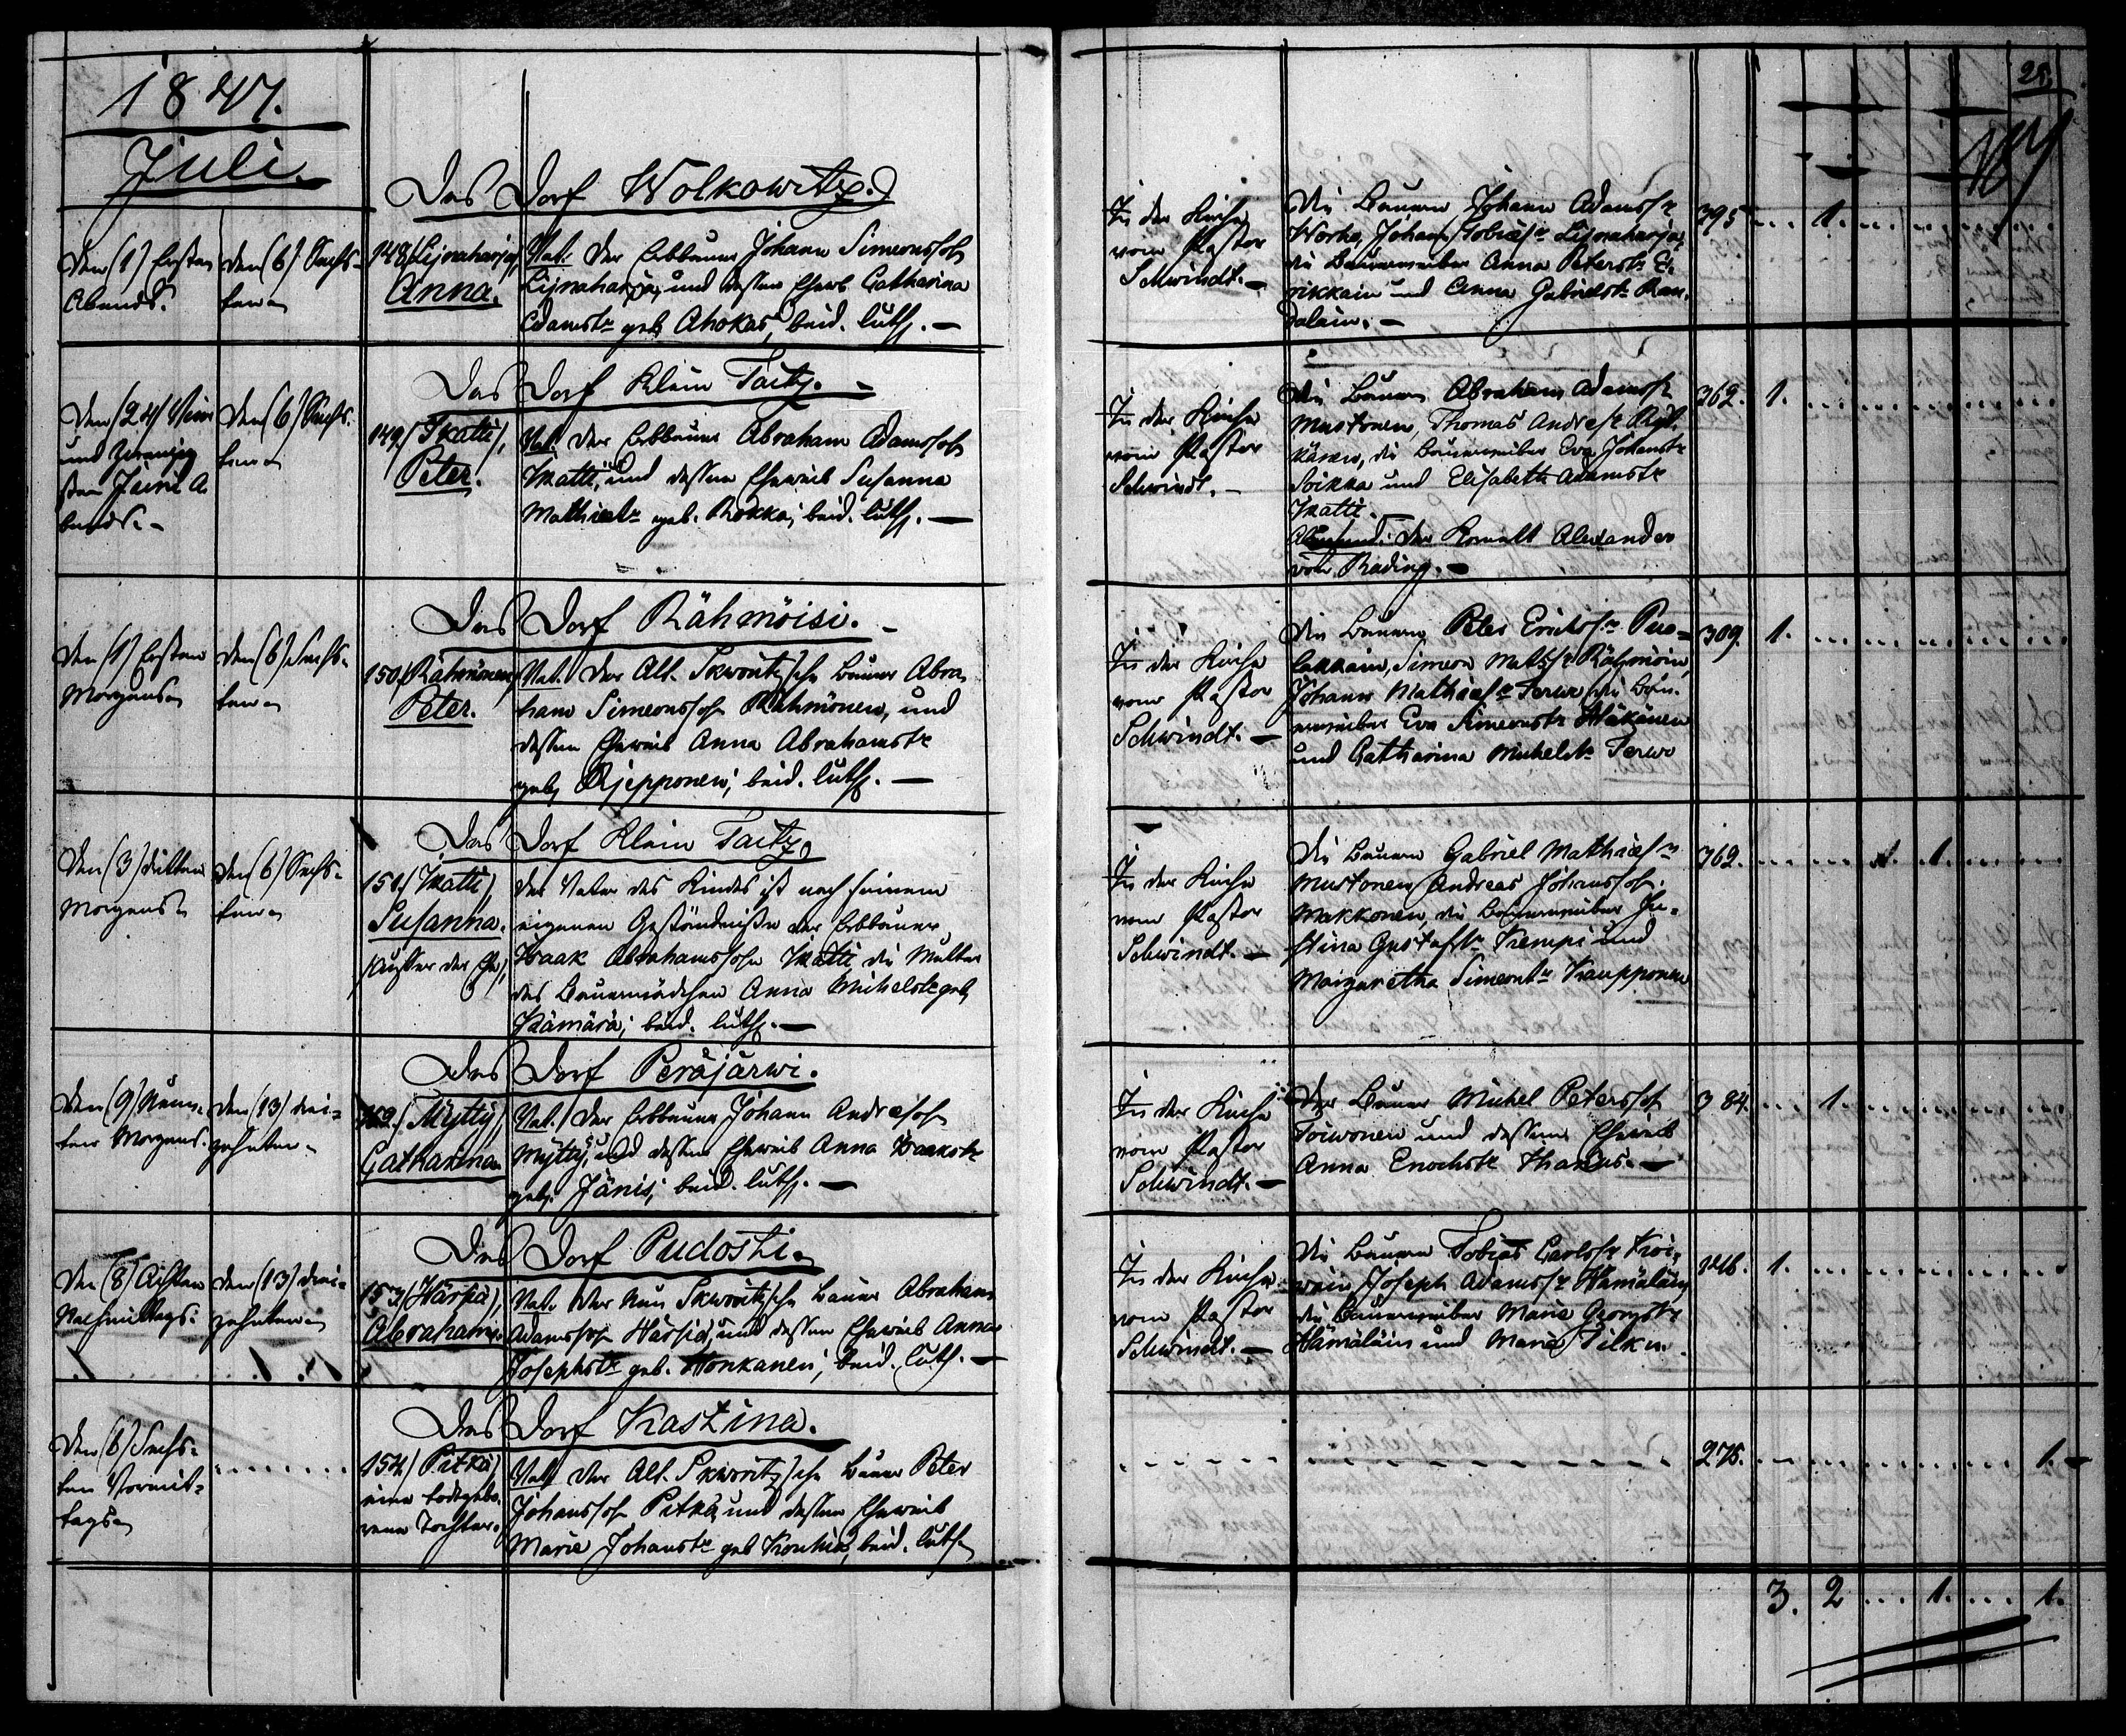 1847.
Juli.
25.
Das Dorf Wolkowitz.
Den (1) Ersten
Abends.
den (6) Sechs-
ten
148, Lijnaharja,
Anna.
Vat. der Erbbauer Johann Simeonssohn
Lijnaharja, und dessen Eheweib Catharina
Adamstr geb. Ahokas, beid. luth. —
In der Kirche
vom Pastor
Schwindt. —
Die Bauern Johann Adamss.
Johann Tobiass. Lijnaharja,
die Bauerweiber Anna Peterstr
rikkain und Anna Gabrielstr Ran-
dalain. —
395 1.
Das Dorf Klein Taitz. —
Den (24) Vier
und zwanzig
sten Juni A-
bends. —
den (6) Sechs-
ten
149, Ikatti,
Peter.
Vat. der Erbbauer Abraham Adamssohn
Ikatti, und dessen Eheweib Susanna
Mathiastr geb. Rokka, beid. luth. —
In der Kirche
vom Pastor
Schwindt. —
Die Bauern Abraham Adamss.
Mustonen, Thomas Andreass.
die Bauerweiber Eva Johanstr
Soikka und Elisabeth Adamstr
Ikatti.
der Alexander
von Rading. —
362. 1.
Das Dorf Rähmöisi. —
Den (1) Ersten
Morgens
den (6) Sechs-
ten
150, Rähmönen,
Peter.
Vat. der Alt. Skworitzsche Bauer Abra-
ham Simeonssohn Rähmönen, und
dessen Eheweib Anna Abrahamstr
geb. Rjepponen, beid. luth. —
In der Kirche
vom Pastor
Schwindt. —
Die Bauern Peter Erichss.
Simeon Matss. Rähmöin,
Johann Mathiass. Terwo, die Bau-
erweiber Eva Simeonstr Häkänen
und Catharina Michelstr Terwo
309. 1.
Das Dorf Klein Taitz.
Den (3) dritten
Morgens
den (6) Sechs-
ten
151, Ikatti,
Susanna.
(Ausser der Ehe)
Der Vater des Kindes ist nach seinem
eigenen Geständnisse der Erbbauer
Isaak Abrahamssohn Ikatti die Mutter
das Bauermädchen Anna Michelstr geb.
Hämärä, beid. luth. —
In der Kirche
vom Pastor
Schwindt. —
Die Bauern Gabriel Mathiass.
Mustonen, Andreas Johanssohn
Makkonen, die Bauerweiber Ju-
stina Gustafstr Kempi und
Margaretha Simeonstr Kaupponen
362. 1.
Das Dorf Peräjärwi.
Den (9) Neun-
ten Morgens.
den (13) drei-
zehnten
152, Mÿttÿ,
Catharina
Vat. der Erbbauer Johann Andreassohn
Mÿttÿ, und dessen Eheweib Anna Isaakstr
geb. Jänis, beid. luth. —
In der Kirche
vom Pastor
Schwindt. —
Der Bauer Michel Peterssohn
Toiwonen und dessen Eheweib
Anna Enochstr
384. 1.
Das Dorf Pudosti.
Den (8) Achten
Nachmittags.
den (13) drei-
zehnten
153, Härjiä,
Abraham.
Vat. der Neu Skworitzsche Bauer Abraham
Adamssohn Härjiä, und dessen Eheweib Anna
Josephstr geb. Honkanen, beid. luth. —
In der Kirche
vom Pastor
Schwindt. —
Die Bauern Tobias Carlss. Koi-
wain, Joseph Adamss. Hämäläin,
die Bauerweiber Maria Georgstr
Hämäläin und Maria Pilku.
1.
Das Dorf Kaskina.
Den (6) Sechs-
ten Vormit-
tags
154, Pitkä,
eine todtgebo-
rene Tochter.
Vat. der Alt. Skworitzsche Bauer Peter
Johanssohn Pitkä, und dessen Eheweib
Maria Johanstr geb. Kontia, beid. luth.
275. 1.
3. 2 1. 1.